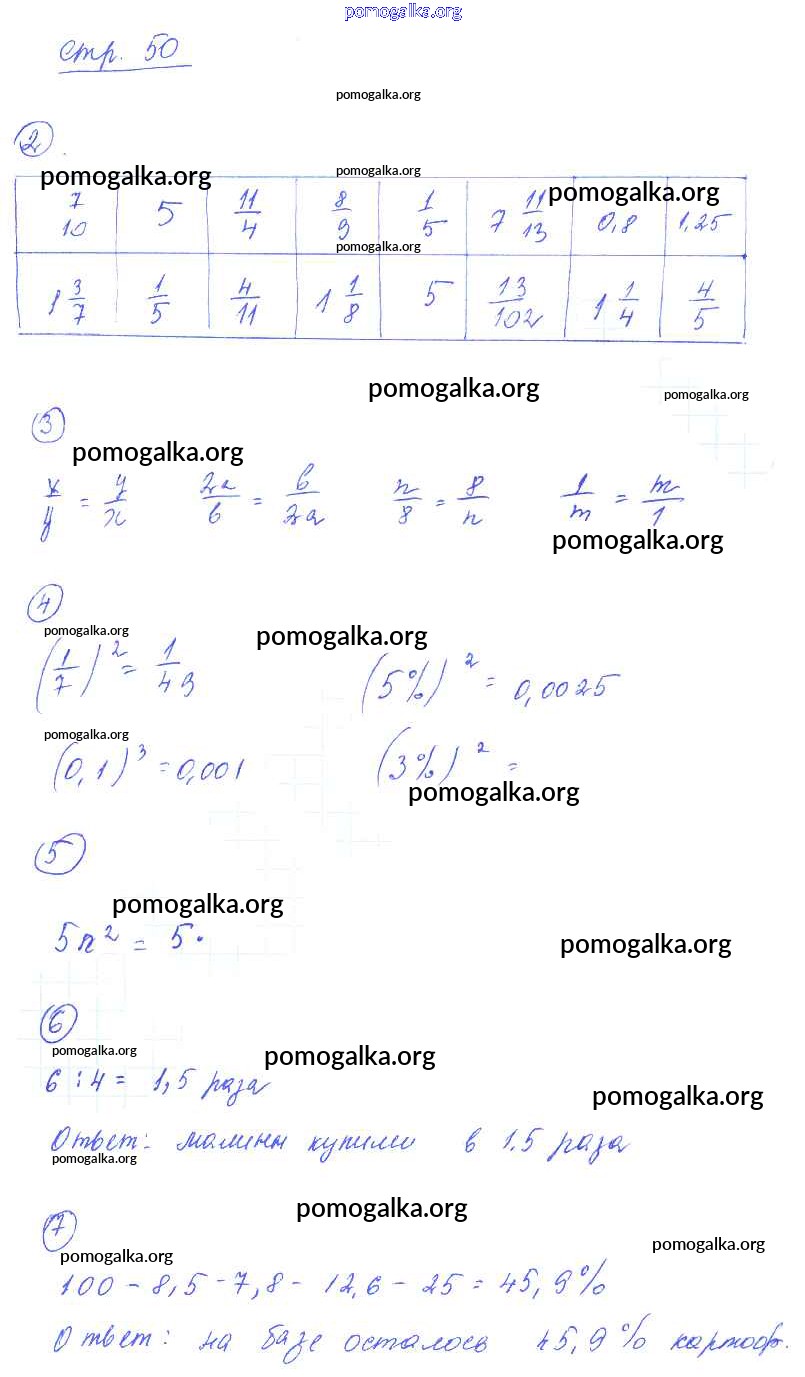 pomogalka.org
стр. 50
pomogalka.org
2
pomogalka.org pomogalka.org pomogalka.org
7/10 5 11/4 8/9 1/5 7 11/13 0,8 1,25
pomogalka.org
1 3/7 1/5 4/11 1 1/8 5 13/102 1 1/4 4/5
pomogalka.org pomogalka.org
3
pomogalka.org
x/y = y/x 2a/b = b/2a n/8 = 8/n 1/m = m/1
pomogalka.org
4
pomogalka.org pomogalka.org
(1/7)² = 1/49 (5%)² = 0,0025
pomogalka.org
(0,1)³ = 0,001 (3%)² =
pomogalka.org
5
pomogalka.org
5n² = 5·
pomogalka.org
6
pomogalka.org pomogalka.org
6 : 4 = 1,5 раза
pomogalka.org
Ответ: малины купили в 1.5 раза
pomogalka.org
pomogalka.org
7
pomogalka.org pomogalka.org
100 - 8,5 - 7,8 - 12,6 - 25 = 45,9%
Ответ: на базе осталось 45,9% картоф.